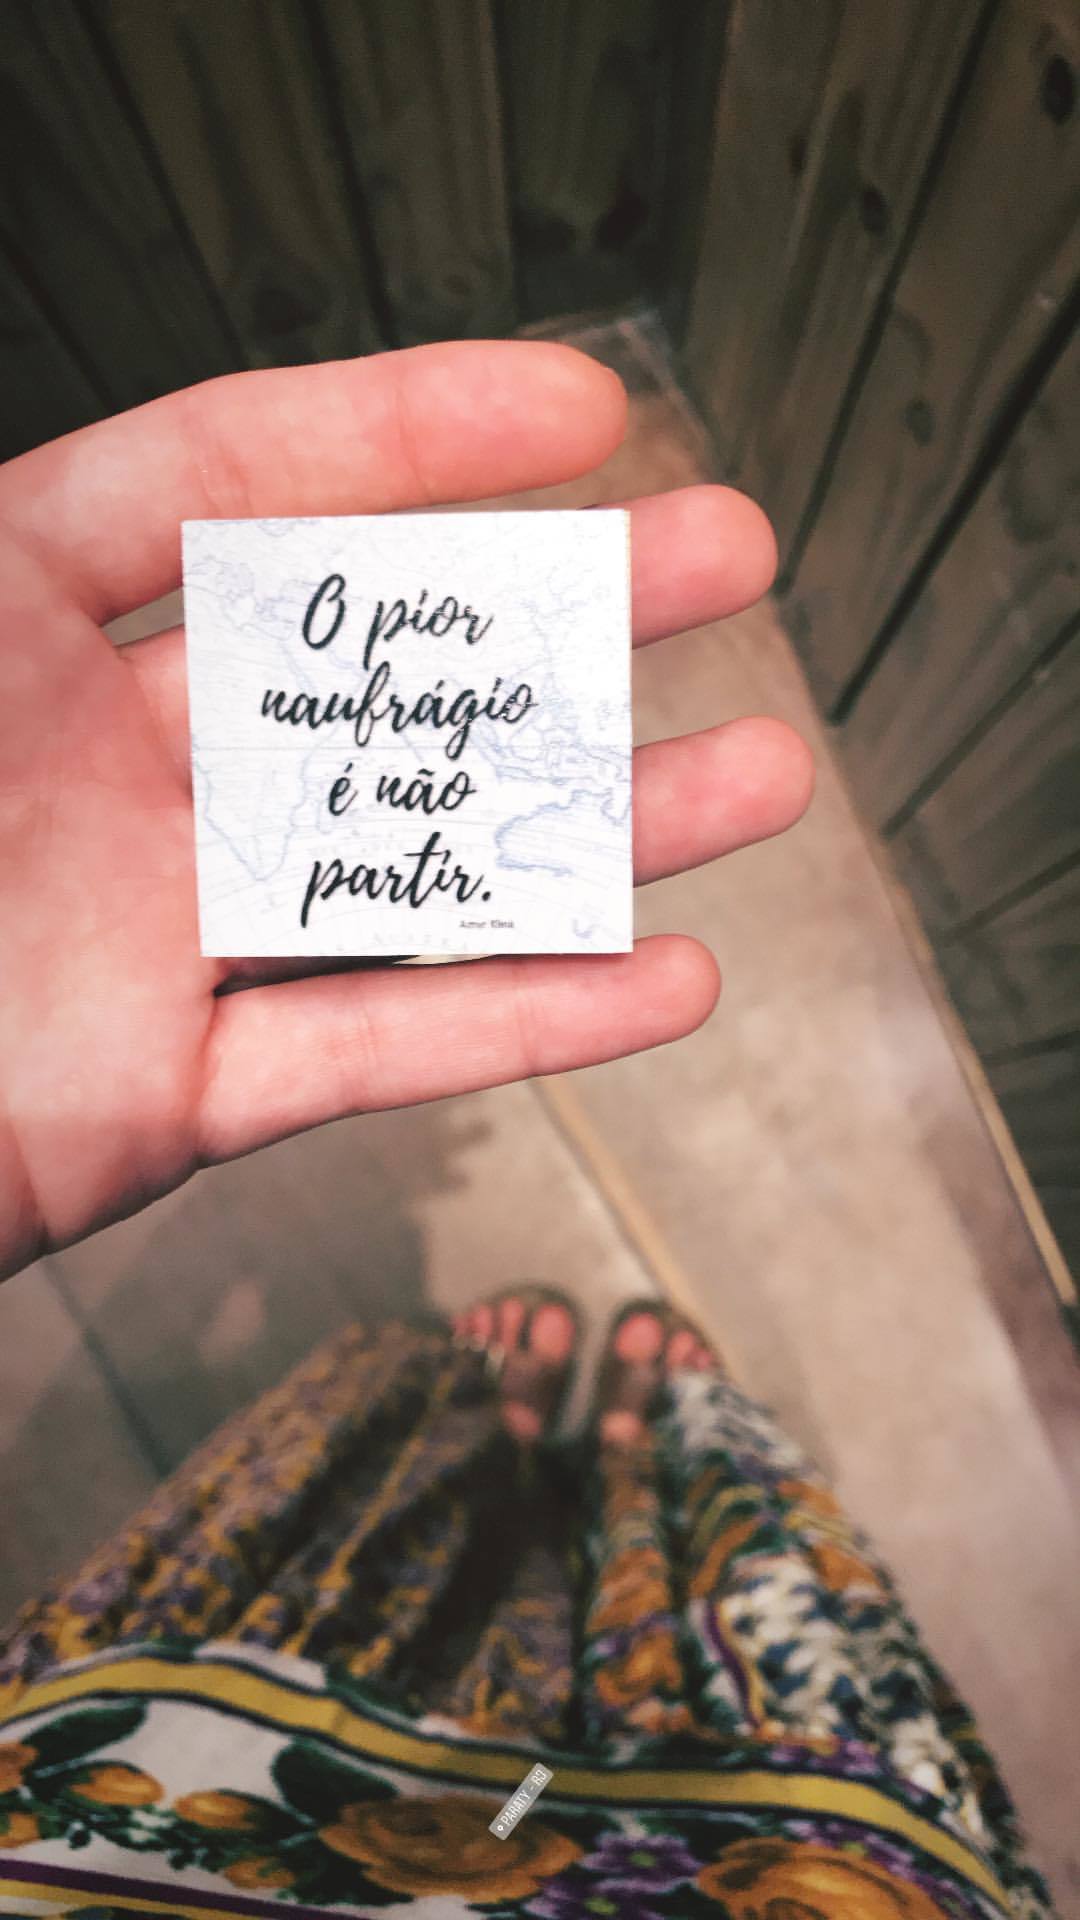 O pior
naufrágio
é não
partir.
Amyr Klink
PARATY - RJ